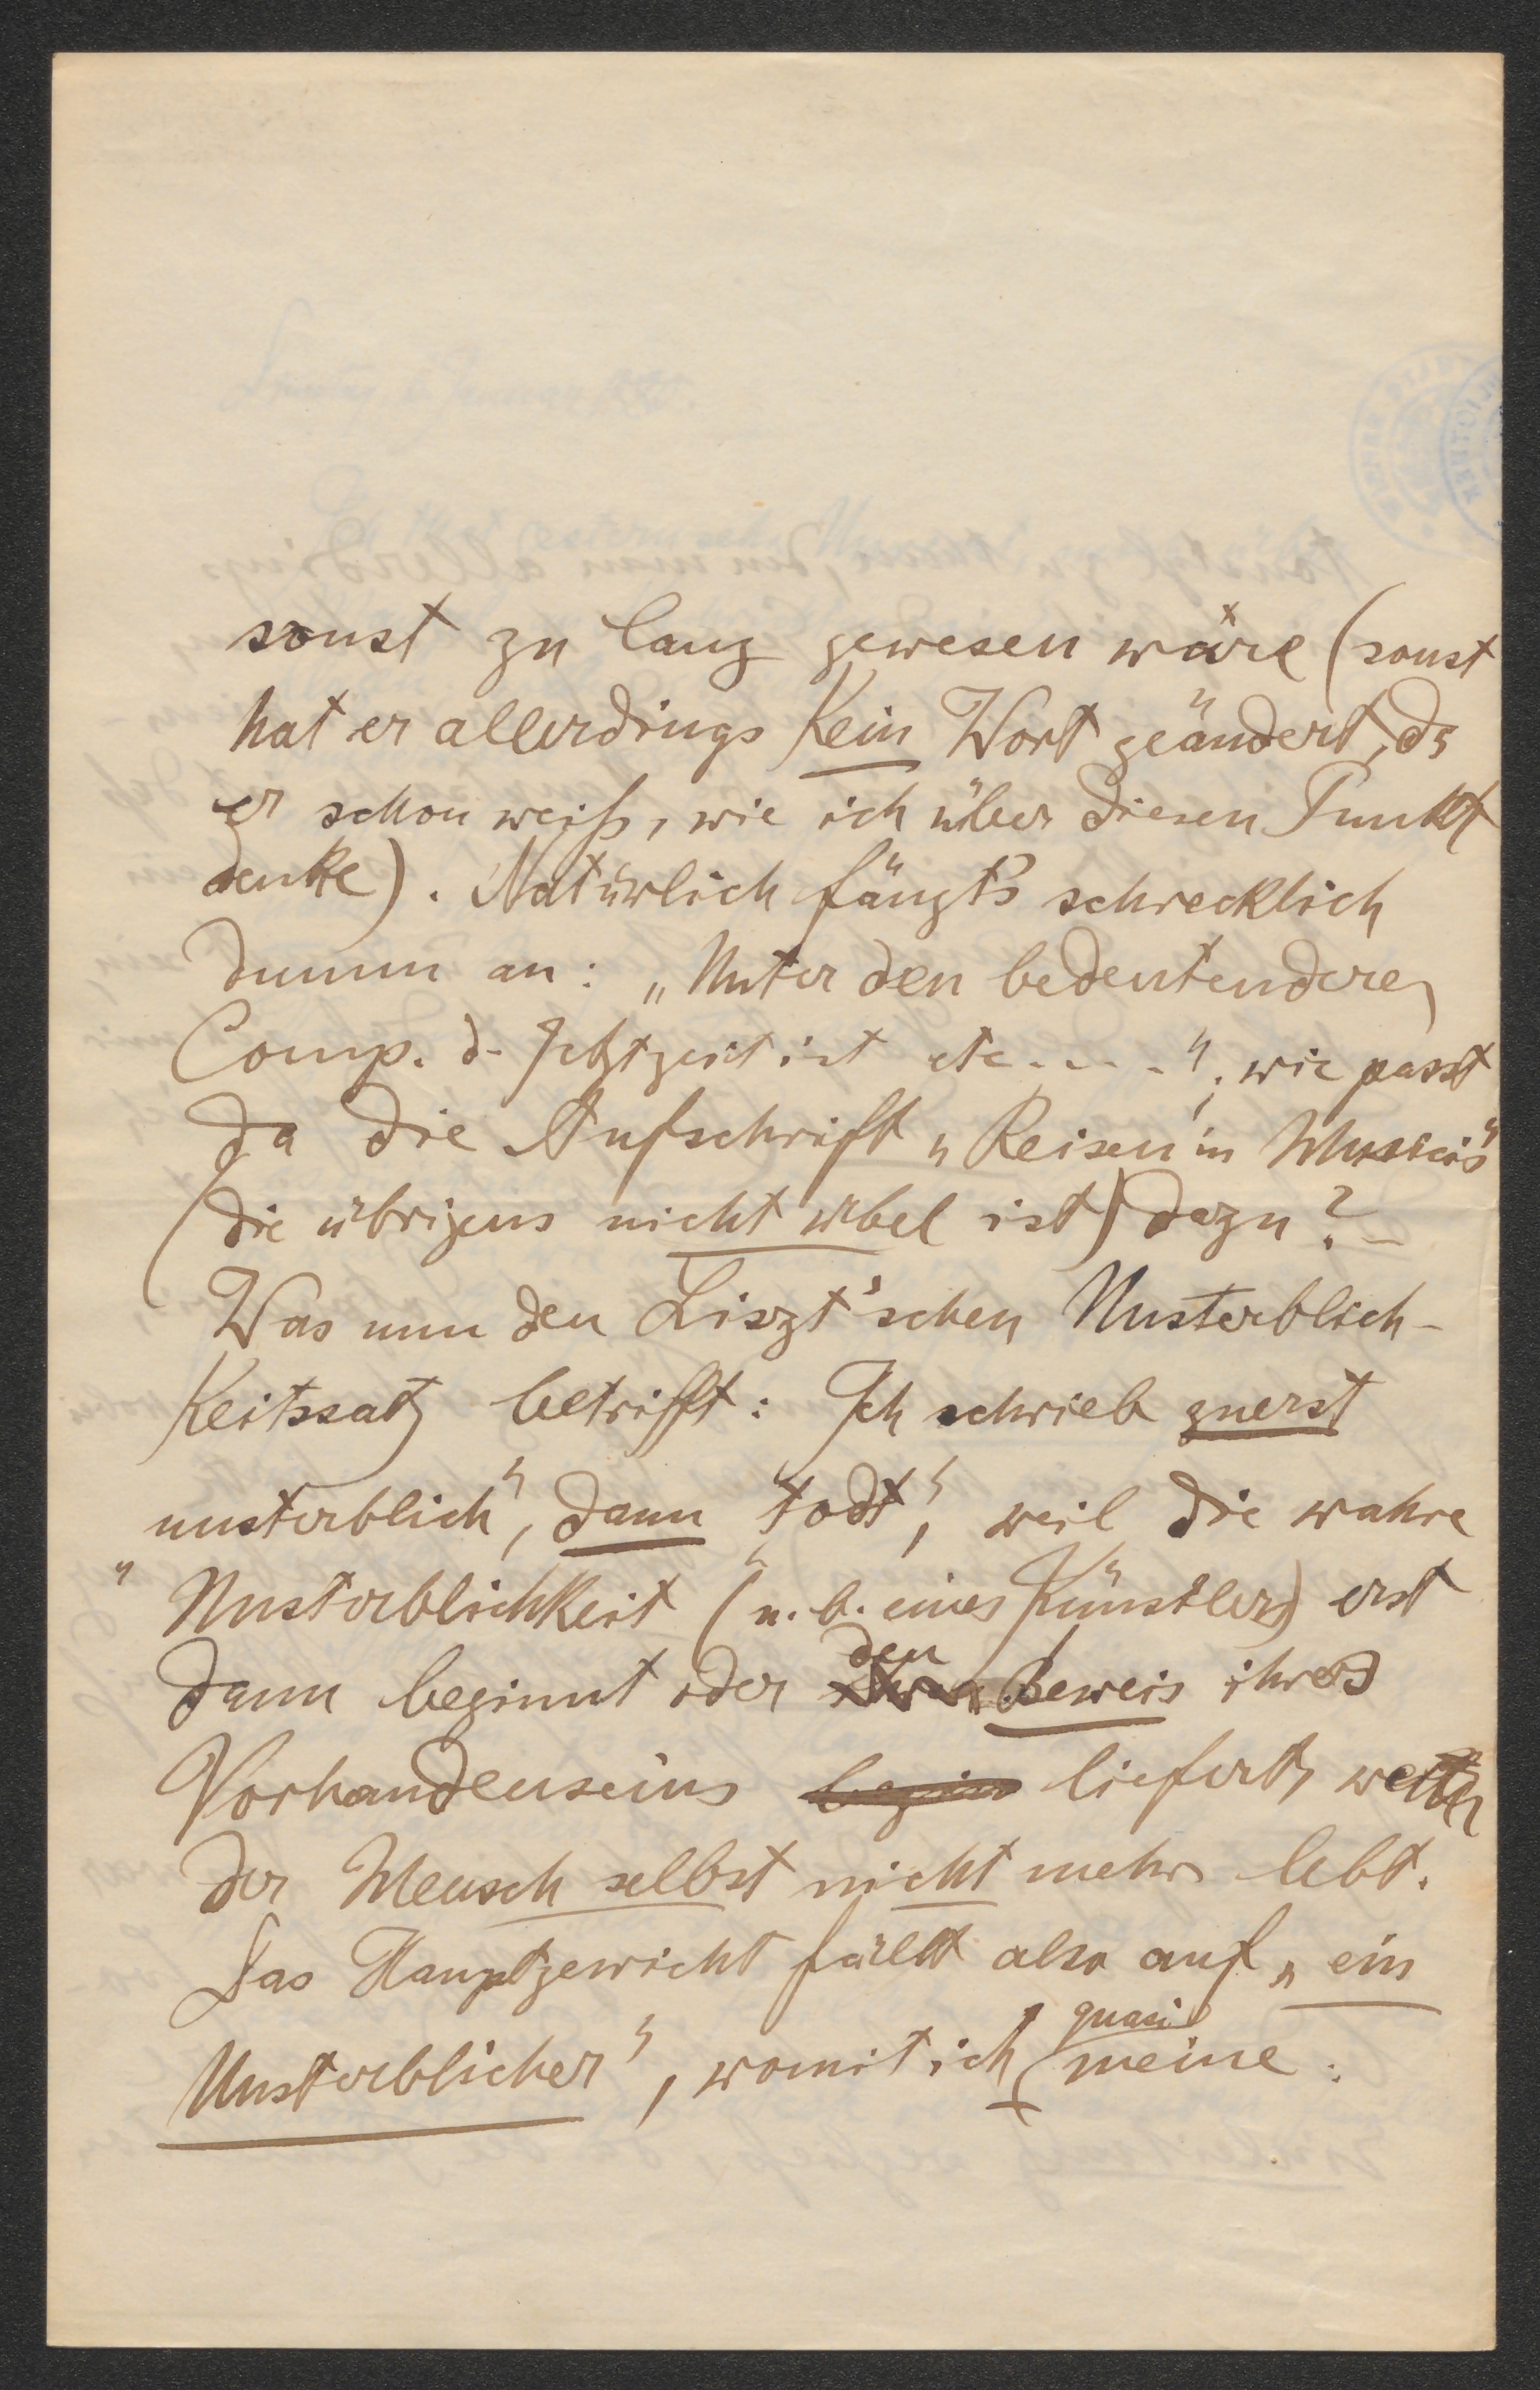 sonst zu lang gewesen wäre (sonst
hat er allerdings kein Wort geändert, da
er schon weiß, wie ich über diesen Punkt
denke). Natürlich fängt's schrecklich
dumm an: „Unter den bedeutenderen
Comp. d. Jetztzeit ist etc - - - -"; wie passt
da die Aufschrift „Reisen in Musicis"
(die übrigens nicht übel ist) dazu? –
Was nun den Liszt'schen Unsterblich-
keitssatz betrifft: Ich schrieb zuerst
„unsterblich", dann „todt", weil die wahre
Unsterblichkeit (n. b. eines Künstlers) erst
dann beginnt oder den Beweis ihres
Vorhandenseins begin liefert, wenn
der Mensch selbst nicht mehr lebt.
Das Hauptgewicht fällt also auf „ein
Unsterblicher", womit ich quasi meine: